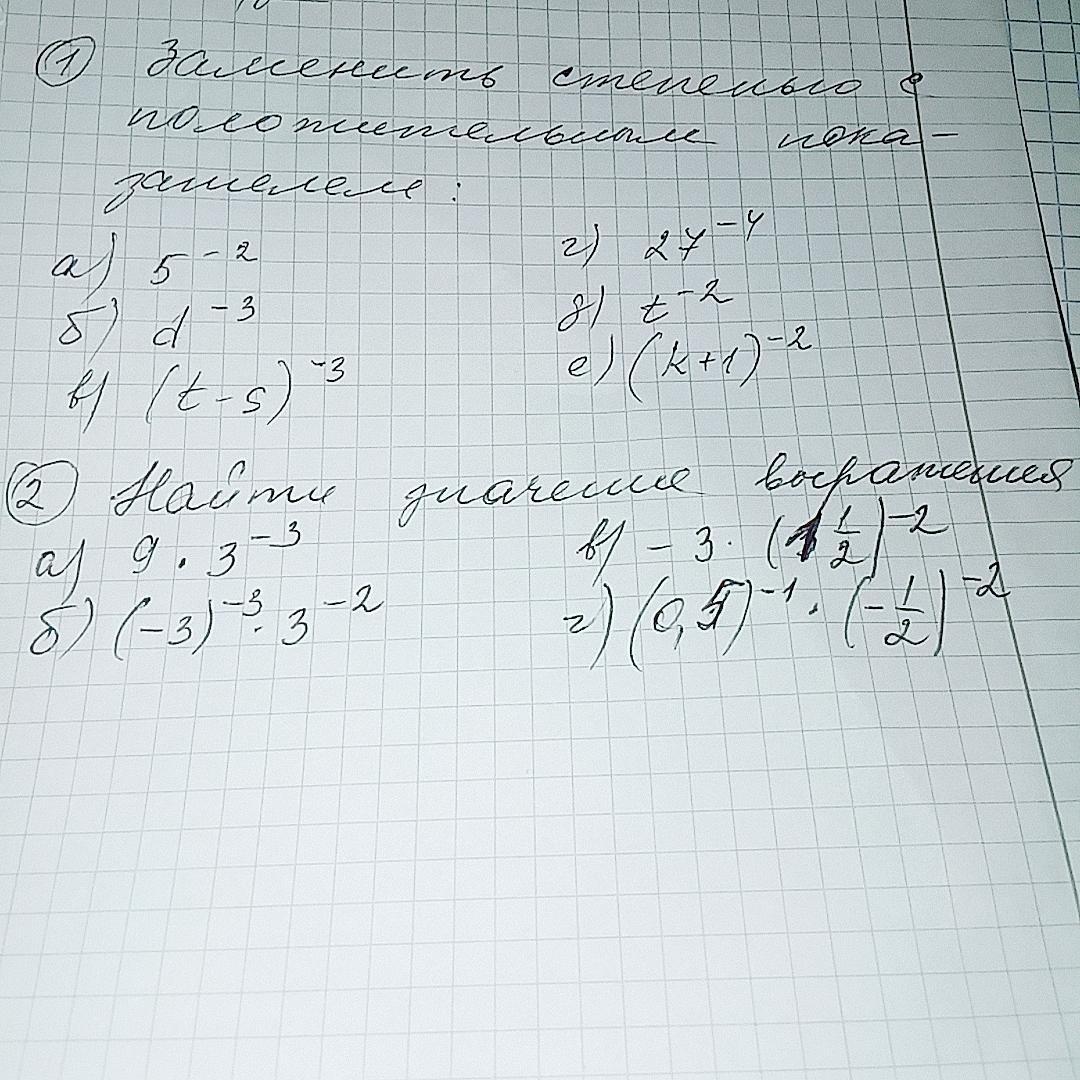 ① Заменить степенью с
положительным пока-
зателем:
а) 5⁻²   г) 27⁻⁴
б) d⁻³   д) t⁻²
в) (t-s)⁻³   е) (k+1)⁻²
② Найти значение выражения
а) 9 · 3⁻³   в) - 3 · (1 1/2)⁻²
б) (-3)⁻³ · 3⁻²   г) (0,5)⁻¹ · (-1/2)⁻²